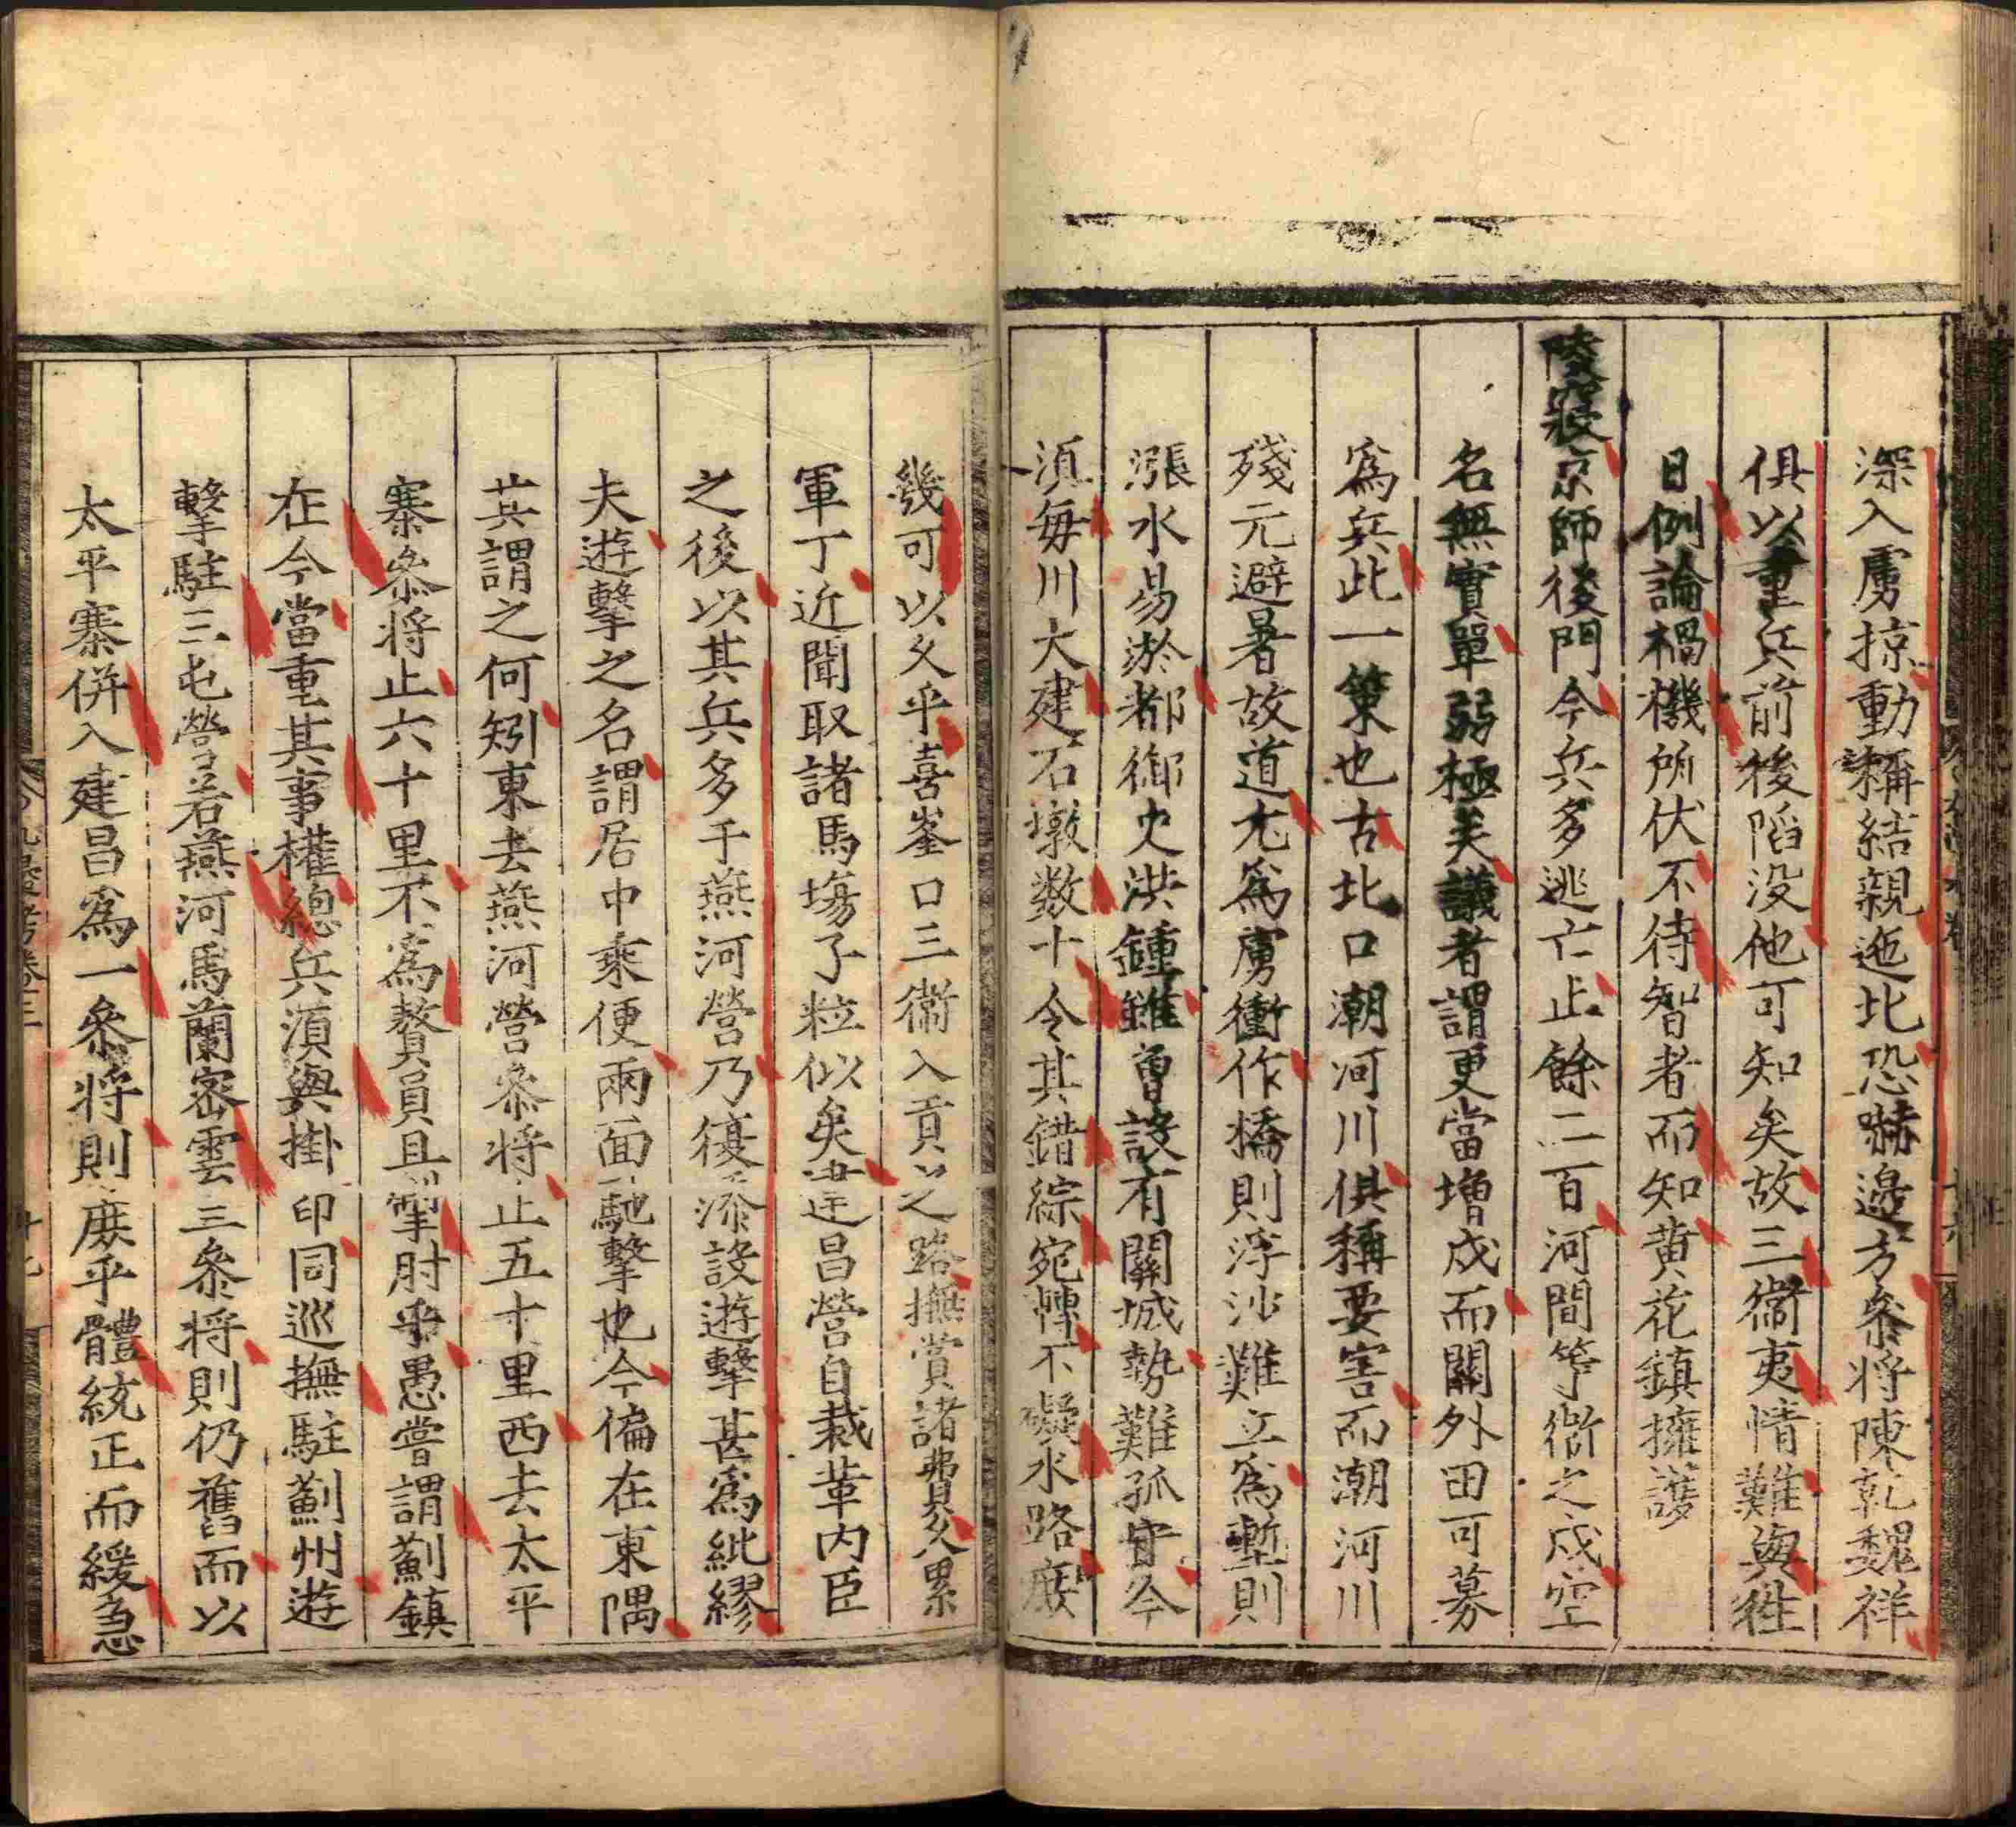 深入虜掠動稱結親迤北恐嚇邊方叅將陳乾魏祥
俱以重兵前後陷没他可知矣故三衞夷情難與徃
日例論禍機所伏不待智者而知黄花鎮擁護
陵寢京師後門今兵多逃亡止餘二百河間等衞之戍空
名無實單弱極矣議者謂更當增戍而關外田可募
爲兵此一策也古北口潮河川俱稱要害而潮河川
殘元避暑故道尤爲虜衝作橋則浮沙難立爲塹則
漲水易淤都御史洪鍾雖曾設有關城勢難孤守今
須每川大建石墩数十令其錯綜宛轉不礙水路庻
幾可以久乎喜峯口三衞入貢之路撫賞諸費久累
軍丁近聞取諸馬塲子粒似矣建昌營自裁革内臣
之後以其兵多于燕河營乃復添設遊擊甚爲紕繆
夫遊擊之名謂居中乘便兩面馳擊也今偏在東隅
其謂之何矧東去燕河營叅將止五十里西去太平
寨叅將止六十里不爲贅員且掣肘乎愚嘗謂薊鎮
在今當重其事權總兵須與掛印同巡撫駐薊州遊
擊駐三屯營若燕河馬蘭密雲三叅將則仍舊而以
太平寨併入建昌爲一叅將則庻乎體統正而緩急